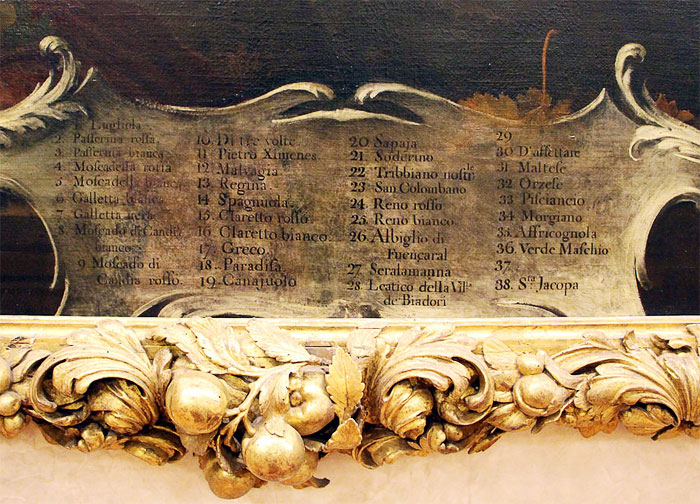 1. Lugliola
2. Passerina rossa.
3. Passerina bianca.
4. Moscadella rossa
5. Moscadella bianca
6 Galletta bianca
7 Galletta nera
8 Moscado di Candia
bianco.
9 Moscado di
Candia rosso.
10. Di tre volte.
11 Pietro Ximenes.
12 Malvagia
13 Regina
14 Spagnuola.
15. Claretto rosso
16. Claretto bianco.
17. Greco.
18. Paradisa.
19. Canajuolo
20 Sapaja
21. Soderino
22 Tribbiano nostrle
23 San Colombano
24 Reno rosso
25. Reno bianco.
26 Albiglio di
Fuencaral
27 Seralamanna
28 Leatico della Villa
de Biadori
29
30 D'affettare
31 Maltese
32 Orzese
33 Pisciancio
34 Morgiano
35. Affricognola
36 Verde Maschio
37
38. Sta Jacopa